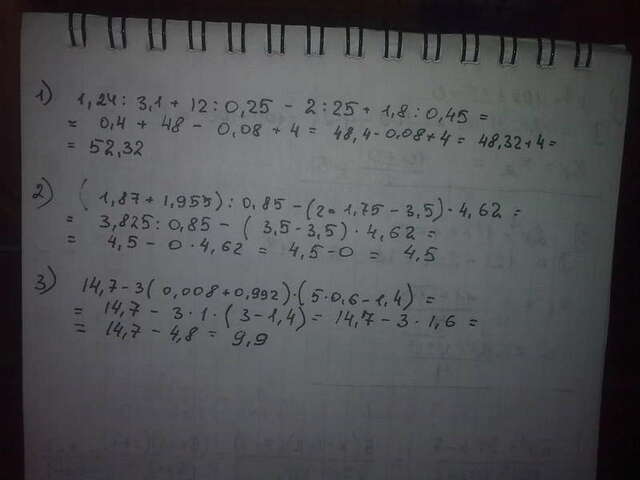 1) 1,24 : 3,1 + 12 : 0,25 - 2 : 25 + 1,8 : 0,45 =
= 0,4 + 48 - 0,08 + 4 = 48,4 - 0,08 + 4 = 48,32 + 4 =
= 52,32
2) (1,87 + 1,955) : 0,85 - (2 · 1,75 - 3,5) · 4,62 =
= 3,825 : 0,85 - (3,5 - 3,5) · 4,62 =
= 4,5 - 0 · 4,62 = 4,5 - 0 = 4,5
3) 14,7 - 3(0,008 + 0,992) · (5 · 0,6 - 1,4) =
= 14,7 - 3 · 1 · (3 - 1,4) = 14,7 - 3 · 1,6 =
= 14,7 - 4,8 = 9,9